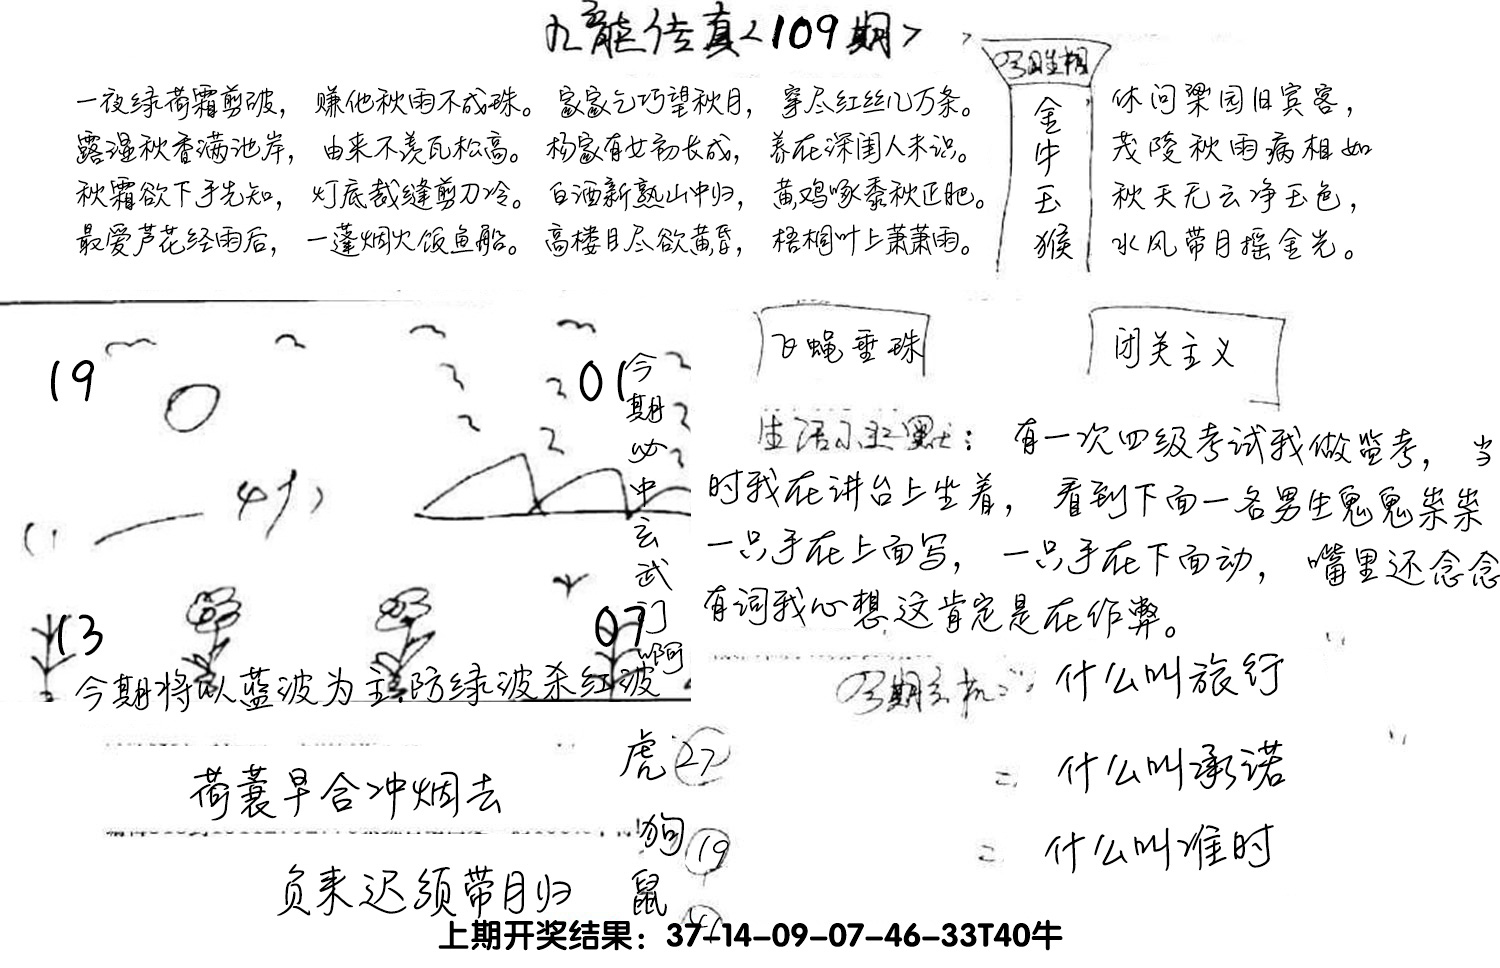 九龍传真<109期>
今期生相
金牛玉猴
一夜绿荷霜剪破，赚他秋雨不成珠。家家乞巧望秋月，穿尽红丝几万条。
露湿秋香满池岸，由来不羡瓦松高。杨家有女初长成，养在深闺人未识。
秋霜欲下手先知，灯底裁缝剪刀冷。白酒新熟山中归，黄鸡啄黍秋正肥。
最爱芦花经雨后，一蓬烟火饭鱼船。高楼目尽欲黄昏，梧桐叶上萧萧雨。
休问梁园旧宾客，
茂陵秋雨病相如
秋天无云净玉色，
水风带月摇金光。
19
01
13
07
今期必中玄武门啊
今期将以蓝波为主防绿波杀红波
飞蝇垂珠
闭关主义
生活小幽默：有一次四级考试我做监考，当
时我在讲台上坐着，看到下面一名男生鬼鬼祟祟
一只手在上面写，一只手在下面动，嘴里还念念
有词我心想这肯定是在作弊。
什么叫旅行
二 什么叫承诺
二 什么叫准时
荷蓑早合冲烟去
负耒迟须带月归
虎 27
狗 19
鼠 41
上期开奖结果：37-14-09-07-46-33T40牛